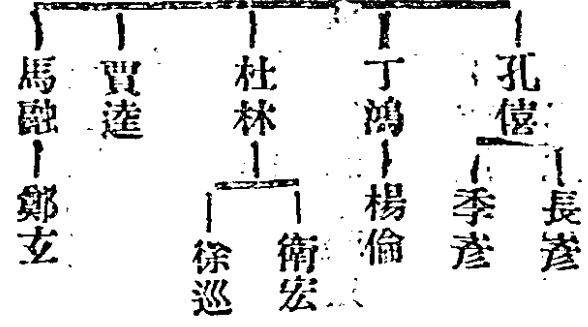 孔僖
長彥
季彥
丁鴻
楊倫
杜林
衛宏
徐巡
賈逵
馬融
鄭玄